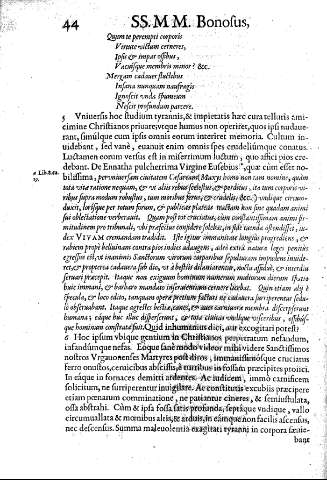 44 SS. M M. Bonosus,
Quem te perempti corporis
Virtute victum cerneres,
Ipsis & impar ossibus,
Vacuisque membris minor? &c.
Mergam cadauer fluctibus
Insana nunquam naufragis
Ignoscit vnda spumeum
Nescit profundum parcere.
5 Vniuersis hoc studium tyrannis, & impietatis hæc cura telluris anti-
cimine Christianos priuare, veque humus non operiret, quos ipsi nudaue-
rant, simulque cum ipsis omnis eorum interiret memoria. Cultum in-
uidebant, sed vanè, euauuit enim omnis spes crudelísque conatus.
Luctamen eorum versus est in miserrimum luctum, quo affici pios cre-
debant. De Ennatha pulcherrima Virgine Eusebius, quæ cùm esset no-
bilissima, per vniuersam ciuitatem Cæsaream, Maxys homo non tam nomine, quàm
tota vita ratione nequam, & vt aliis rebus scelestus, & perditus, ita tum corporis vi-
ribus supra modum robustus, tum moribus ferus, & crudelis; &c. vndique circum-
ducit, lorisque per totum forum, & publicas plateas nuctam non sine quadam animi
sui oblectatione verberauit. Quam post tot cruciatus, cùm constantissimam animi fir-
mitudinem pro tribunali, vbi præfectus considere solebat, in fide tuenda ostendisset, iu-
dex VIVAM cremandam tradidit. Iste igitur immanitate longiùs progrediens, &
rabiem propè belluinam contra pios indies adaugens, adeò extra naturæ leges penitùs
egressus est, vt inanimis Sanctorum virorum corporibus sepulcrum impudens inuide-
ret, & propterea cadauera sub dio, vt à bestiis dilaniarentur, noctu assiduè, & interdiu
seruari præcepit. Itaque non exiguum hominum numerum multorum dierum spatio
huic immani, & barbaro mandato inseruientium cernere licebat. Quin etiam alij è
specula, & loco edito, tanquam opere pretium facturi ne cadauera surriperentur sedu-
lò obseruabant. Itaque agrestes bestiæ, canes, & aues carniuoræ membra discerpserunt
humana; eáque huc illuc disiecerunt, & tota ciuitas vndique visceribus, ossibús-
que hominum constrata fuit. Quid inhumanius dici, aut excogitari potest?
6 Hoc ipsum vbique gentium in Christianos perpetratum nefandum,
infandúmque nefas. Eoque sanè modo videor mihi videre Sanctissimos
nostros Vrgauonenses Martyres post diros, immanissimósque cruciatus
ferro onustos, ceruicibus abscissis, à turribus in fossam præcipites proiici.
In eáque in fornaces demitti ardentes. Ac iudicem, immò carnificem
sollicitum, ne surriperentur inuigilare. Ac constitutis excubiis præcipere
etiam pœnarum comminatione, ne patiantur cineres, & semiustulata,
ossa abstrahi. Cùm & ipsa fossa satis profunda, septáque vndique, vallo
circumuallata & mœnibus altis, & arduis, in eámque non facilis ascensus,
nec descensus. Summa maleuolentia exagitati tyranni in corpora sæuie-
bant